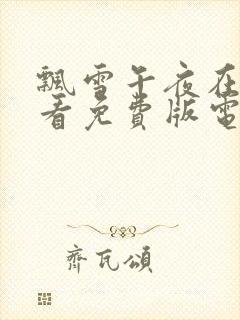 飄雪午夜在
看免費版電
齊瓦頌